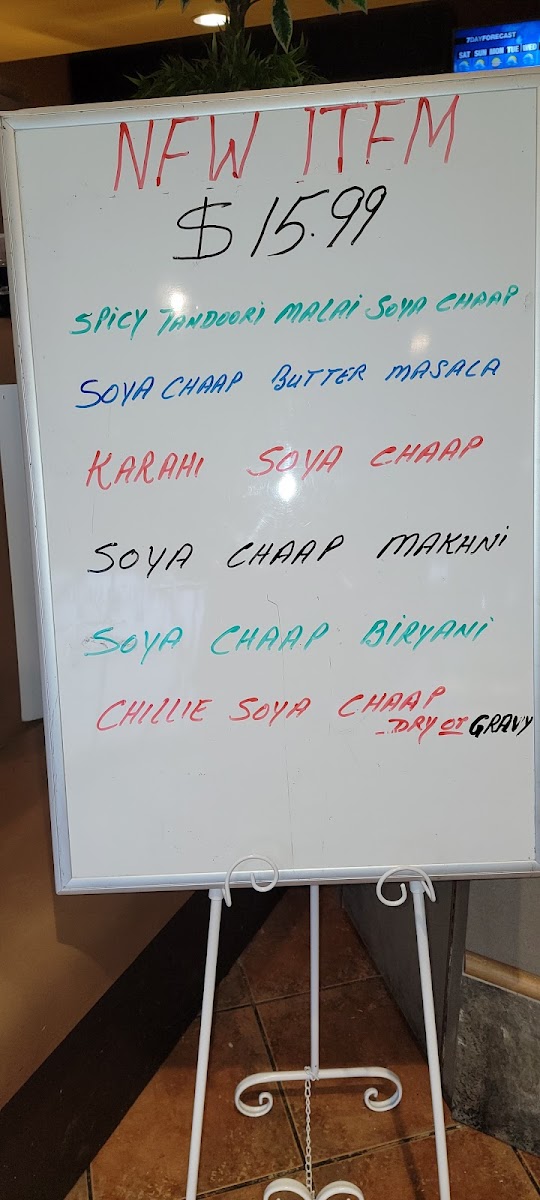 7DAYFORECAST
SAT SUN MON TUE WED
NEW ITEM
$15.99
SPICY TANDOORI MALAI SOYA CHAAP
SOYA CHAAP BUTTER MASALA
KARAHI SOYA CHAAP
SOYA CHAAP MAKHNI
SOYA CHAAP BIRYANI
CHILLIE SOYA CHAAP
- DRY or GRAVY